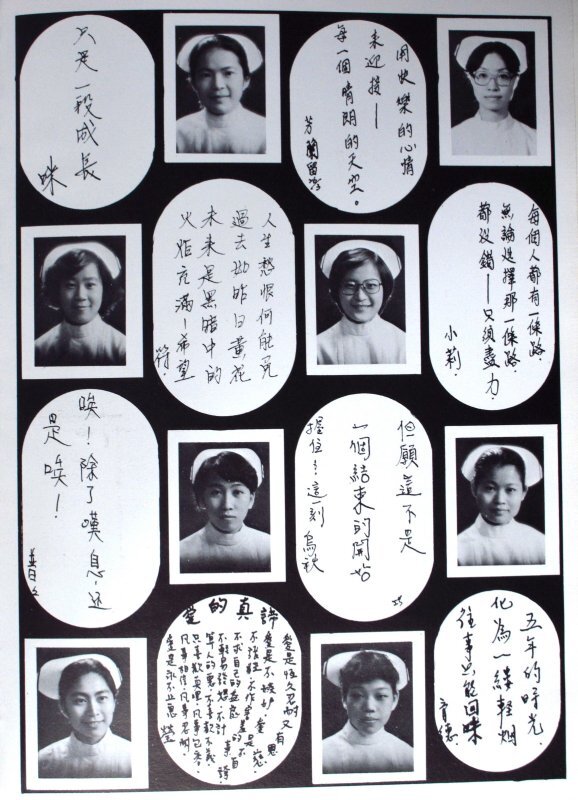 只是一段成長
咪
用快樂的心情
來迎接—
每一個晴朗的天空。
芳蘭留
人生愁恨何能免
過去昨日黃花
未來是黑暗中的
火炬充滿一希望
符.
每個人都有一條路.
無論選擇那一條路
都沒錯—只須盡力.
小莉.
唉！除了嘆息.还
是唉！
但願這不是
一個結束的開始
握住這一刻
愛的真諦
愛是恆久忍耐又有恩
慈.愛是不嫉妒,愛是不
自誇
不求自己的益處
不輕易發怒.不計
算人的惡.不喜歡不義
只喜歡真理.凡事包容.
凡事相信.凡事忍耐.
愛是永不止息
五年的時光.
化為一縷輕烟
往事只能回味